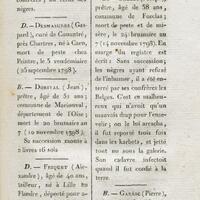 nègres.
D. — DESMAISURES (Gaspard), curé de
près Chartres, né à Caen,
mort de peste chez
Peintre, le 3 vendémiaire
(25 septembre 1798).
B. — DORIVAL (Jean),
prêtre, âgé de 51 ans;
commune de
département de l'Oise;
mort le 20 brumaire an
7 (10 novembre 1798);
Sa succession monte à
2 livres 16 sols
D. — FRIQUET (Alexandre), âgé de 40 ans,
tailleur, né à Lille en
Flandre, déporté pour
prêtre, âgé de 58 ans,
commune de
mort de peste et de misère, le 24 brumaire an
7 (14 novembre 1798). En
marge du registre est
écrit: Sans succession;
les nègres ayant refusé
de l'inhumer, il a été enterré par ses confrères les
Belges. C'est ce malheureux qui n'avait qu'un
drap mouillé pour couverture, à qui on le vola
lorsqu'il
arcades, fut reporté trois
fois dans les karbets, et
jetté tous la gabriole.
Son cadavre infectoit
quand il fut confié à la
terre.
B. — GARNIC (Pierre),